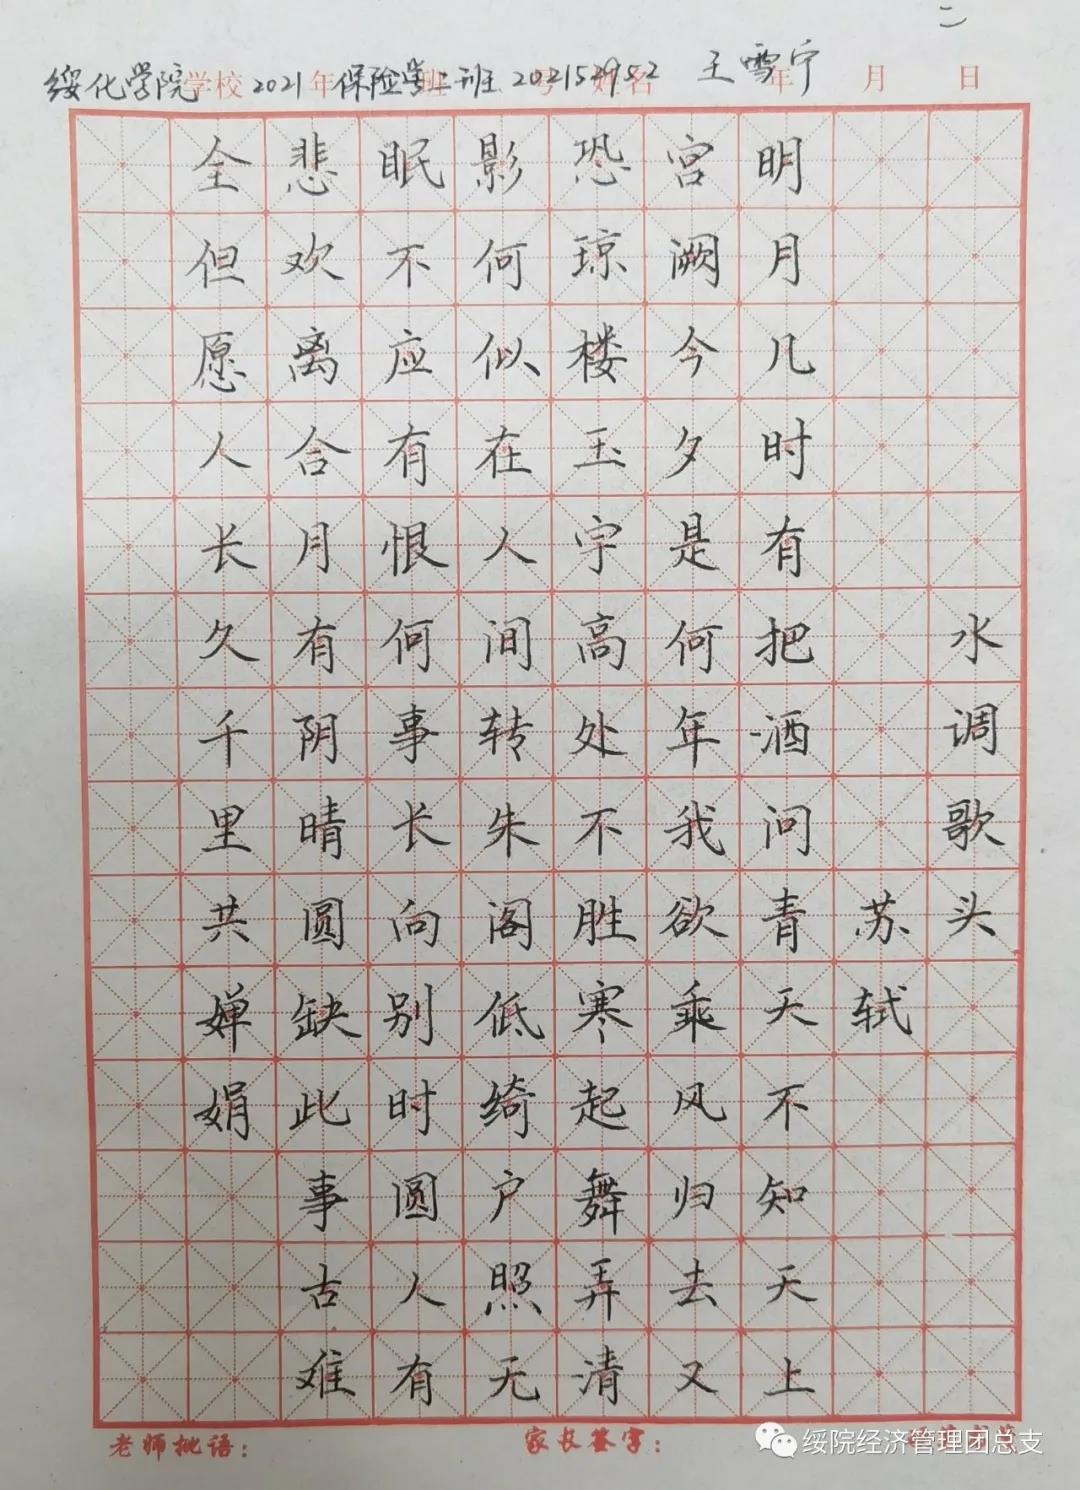 二
绥化学院 学校 2021 年 保险学二班 202152952 王雪宁 年 月 日
水调歌头
苏轼
明月几时有把酒问青天不知天上
宫阙今夕是何年我欲乘风归去又
恐琼楼玉宇高处不胜寒起舞弄清
影何似在人间转朱阁低绮户照无
眠不应有恨何事长向别时圆人有
悲欢离合月有阴晴圆缺此事古难
全但愿人长久千里共婵娟
老师批语： 家长签字：
绥院经济管理团总支